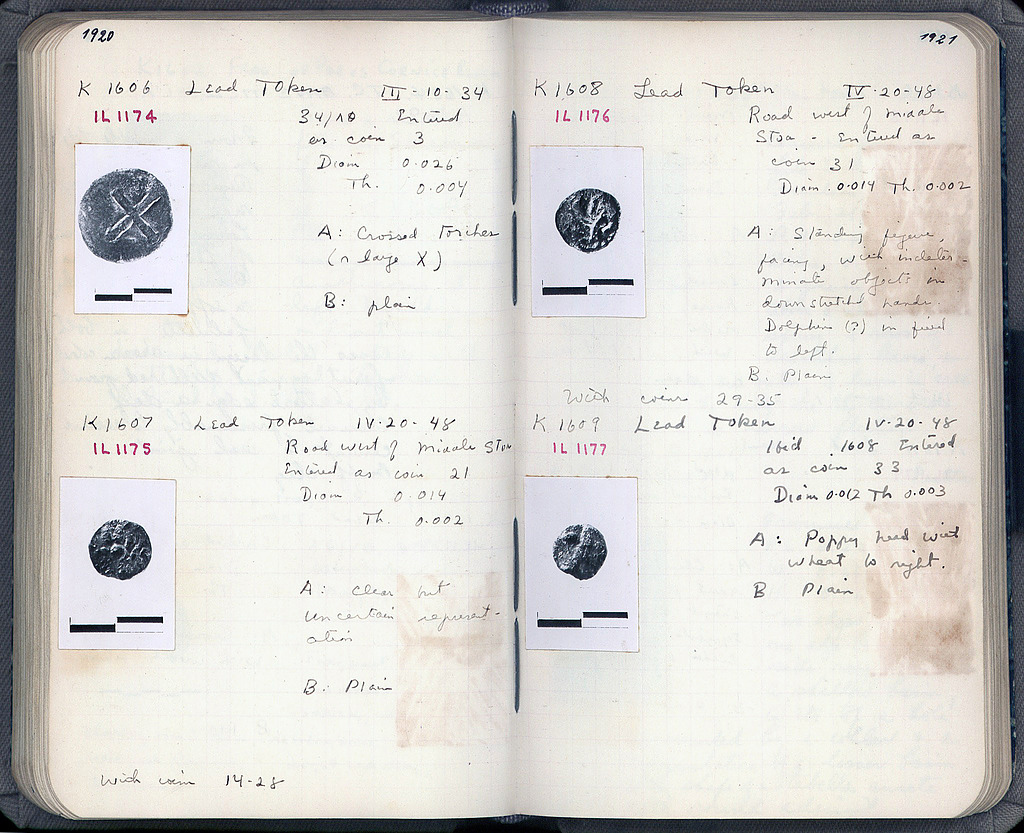 1920
K 1606 Lead Token III-10-34
IL 1174
34/10 Entered
as coin 3
Diam 0.026
Th. 0.004
A: Crossed Torches
(or large X)
B: plain
K 1607 Lead Token IV-20-48
IL 1175
Road west of Middle Stoa
Entered as coin 21
Diam 0.014
Th. 0.002
A: clear but
uncertain represent-
ation
B: Plain
With coins 14-28
1921
K 1608 Lead Token IV-20-48
IL 1176
Road west of Middle
Stoa - Entered as
coin 31
Diam 0.014 Th. 0.002
A: Standing figure,
facing, with indeter-
minate objects in
downstretched hands.
Dolphin (?) in field
to left.
B. Plain
With coins 29-35
K 1609 Lead Token IV-20-48
IL 1177
Ibid 1608 Entered
as coin 33
Diam 0.012 Th 0.003
A: Poppy head with
wheat to right.
B Plain